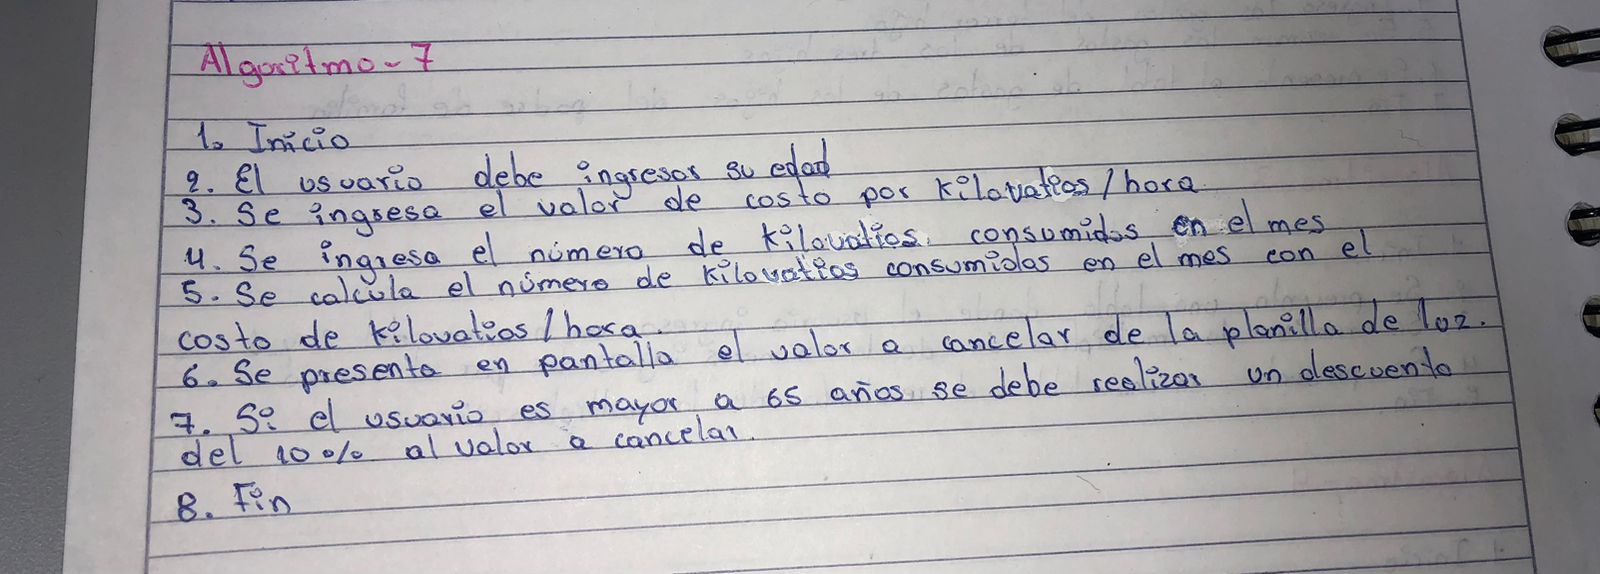 Algoritmo - 7
1. Inicio
2. El usuario debe ingresar su edad
3. Se ingresa el valor de costo por kilovatios/hora
4. Se ingresa el número de kilovatios consumidos en el mes
5. Se calcula el número de kilovatios consumidos en el mes con el
costo de kilovatios/hora
6. Se presenta en pantalla el valor a cancelar de la planilla de luz.
7. Si el usuario es mayor a 65 años se debe realizar un descuento
del 10% al valor a cancelar.
8. Fin